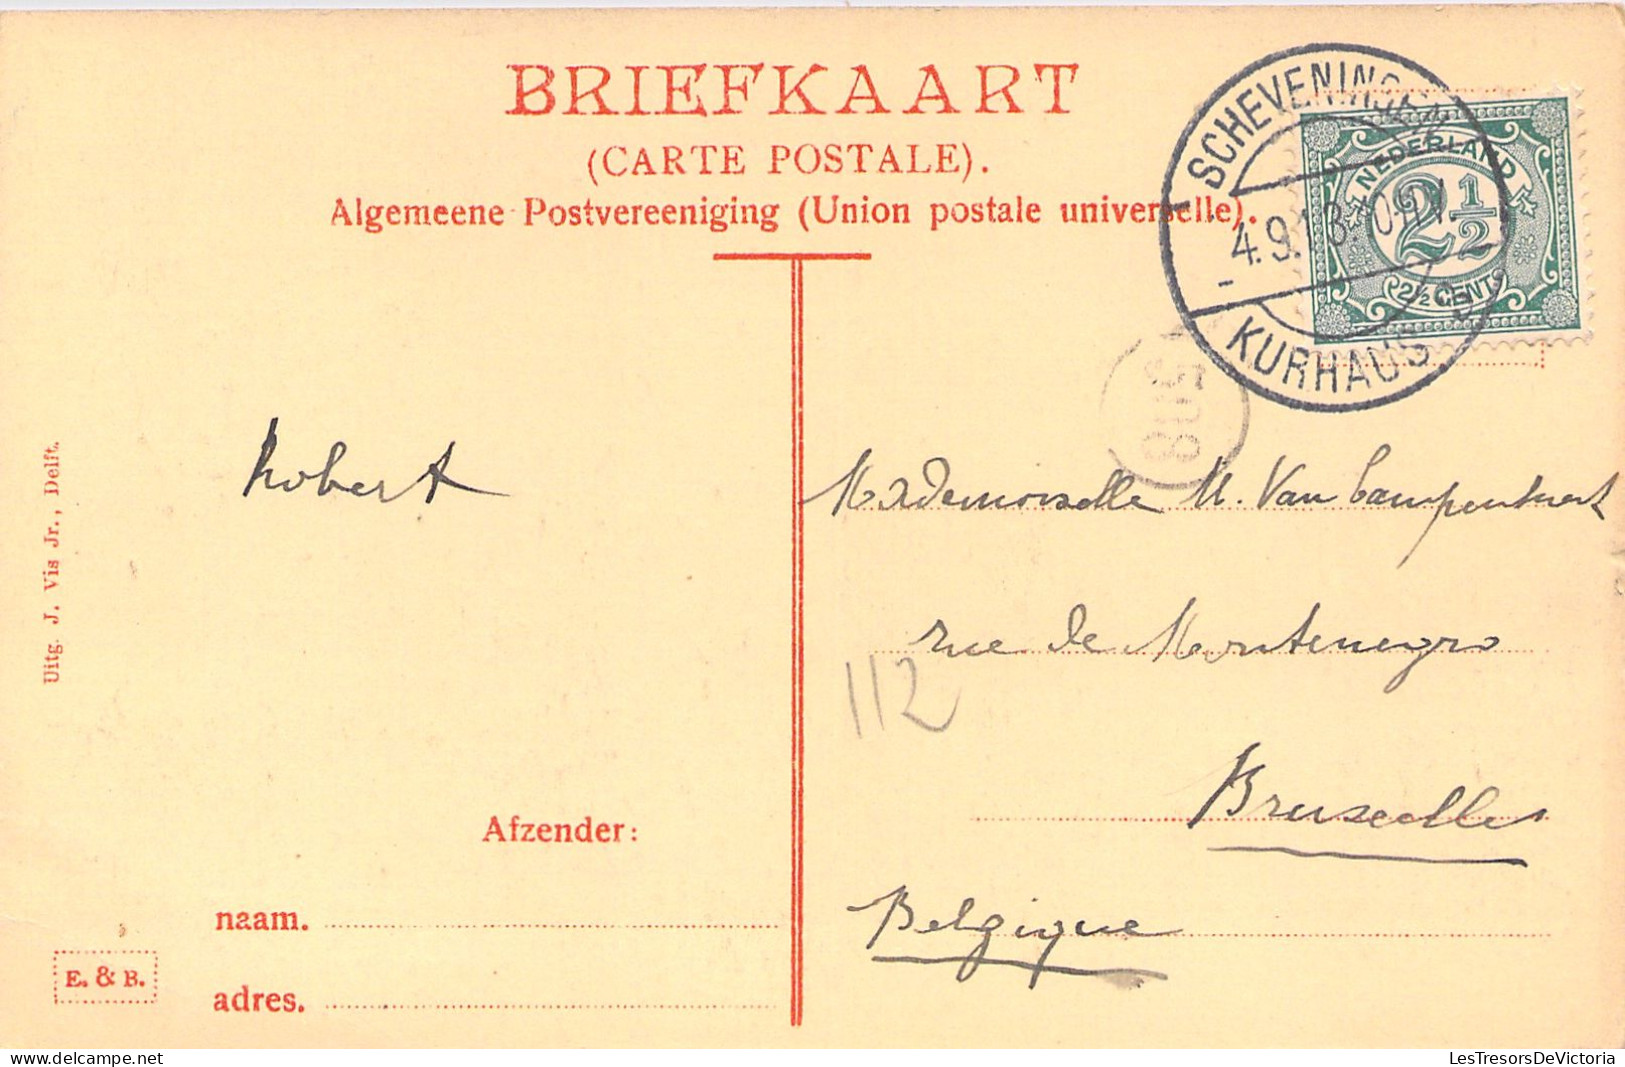 BRIEFKAART
(CARTE POSTALE).
Algemeene Postvereeniging (Union postale universelle).
SCHEVENINGEN
4.9.13.
KURHAUS
NEDERLAND
2½
2½ CENT
Robert
Mademoiselle M. Van Campenhout
rue de Montenegro
112
Bruxelles
Belgique
Afzender:
naam.
adres.
Uitg. J. Vis Jr., Delft.
E. & B.
delcampe.net
LesTresorsDeVictoria